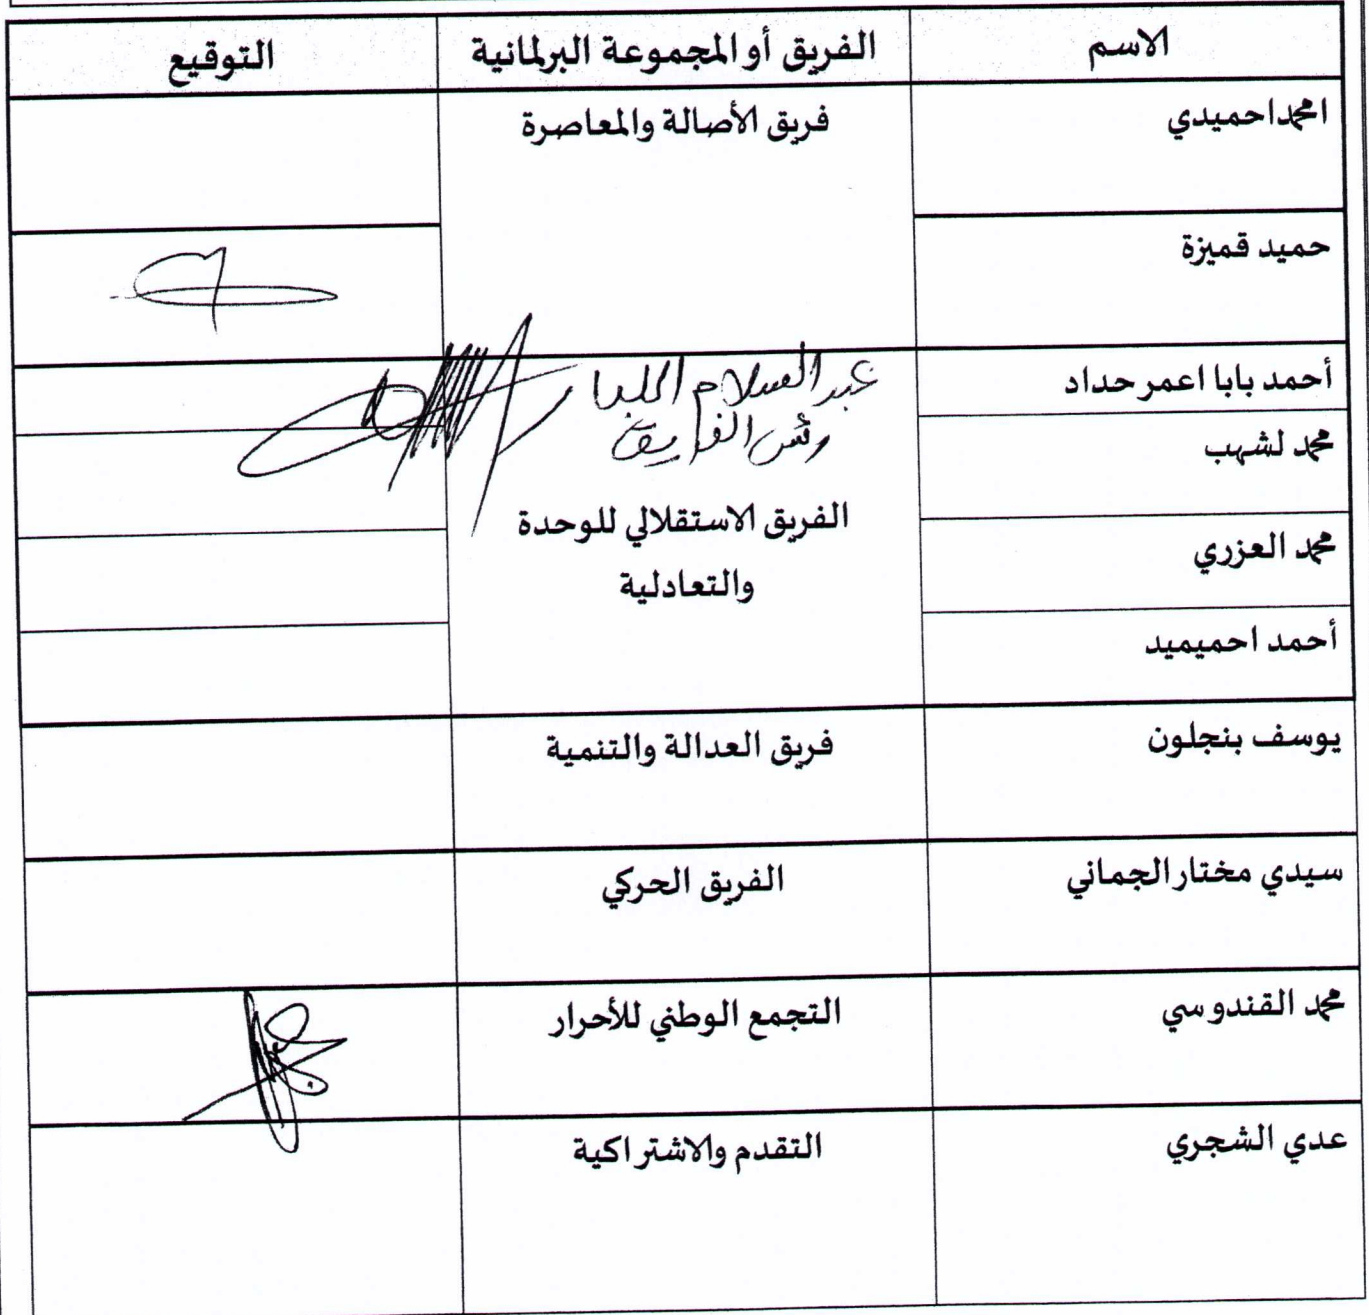 الاسم الفريق أو المجموعة البرلمانية التوقيع
امحمد احميدي فريق الأصالة والمعاصرة
حميد قميزة
أحمد بابا اعمر حداد عبد السلام اللبار
محمد لشهب رئيس الفريق
الفريق الاستقلالي للوحدة
محمد العزري
والتعادلية
أحمد احميميد
يوسف بنجلون فريق العدالة والتنمية
سيدي مختار الجماني الفريق الحركي
محمد القندوسي التجمع الوطني للأحرار
عدي الشجري التقدم والاشتراكية